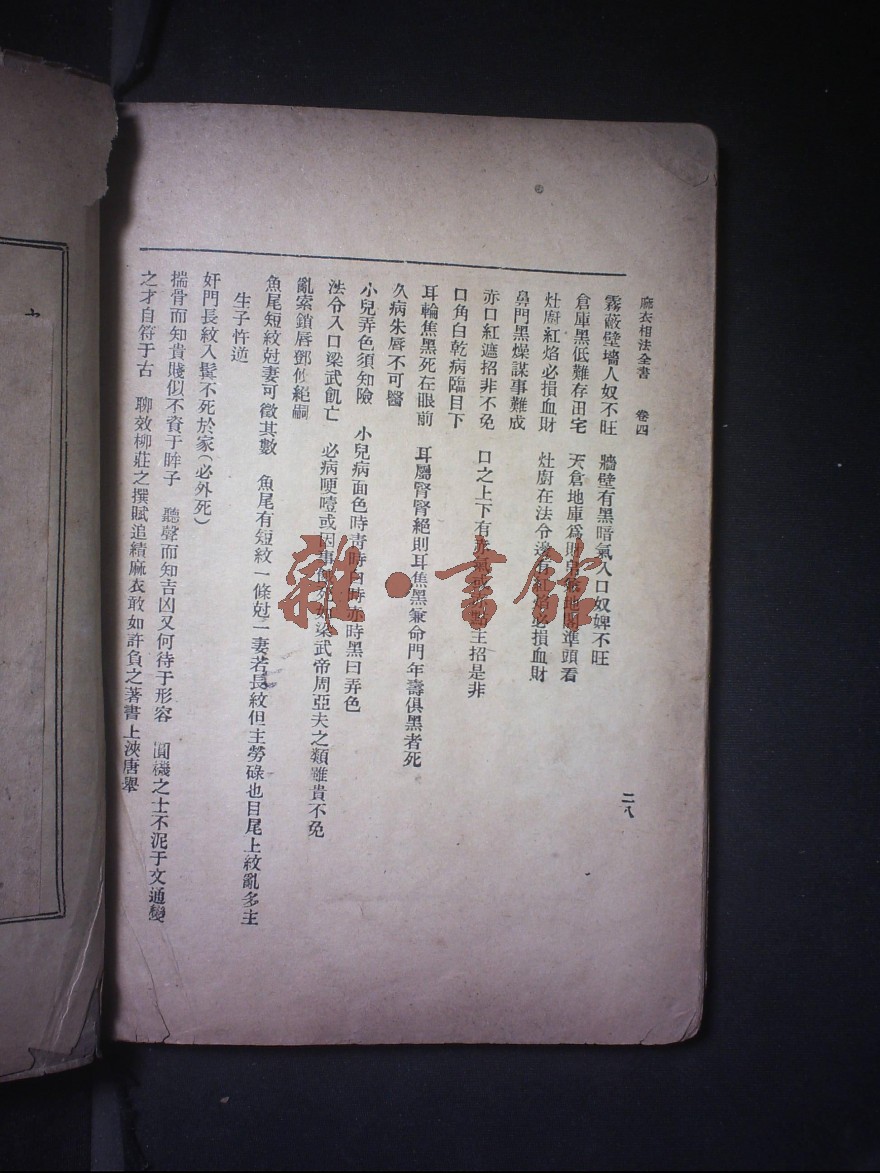 麻衣相法全書 卷四 二八
霧蔽壁墻人奴不旺 牆壁有黑暗氣人口奴婢不旺
倉庫黑低難存田宅 天倉地庫爲財帛 地閣準頭看
灶廚紅焰必損血財 灶廚在法令邊有紅焰必損血財
鼻門黑燥謀事難成
赤口紅遮招非不免 口之上下有赤氣 主招是非
口角白乾病臨目下
耳輪焦黑死在眼前 耳屬腎腎絕則耳焦黑兼命門年壽俱黑者死
久病朱唇不可醫
小兒弄色須知險 小兒病面色時靑時白時赤時黑曰弄色
法令入口梁武飢亡 必病哽噎或因事餓死如梁武帝周亞夫之類雖貴不免
亂索鎖唇鄧攸絕嗣
魚尾短紋尅妻可徵其數 魚尾有短紋一條尅一妻若長紋但主勞碌也目尾上紋亂多主
生子忤逆
奸門長紋入鬂不死於家(必外死)
揣骨而知貴賤似不資于眸子 聽聲而知吉凶又何待于形容 圓機之士不泥于文通變
之才自符于古 聊效柳莊之撰賦追績麻衣敢如許負之著書上浹唐擧
雜·書館